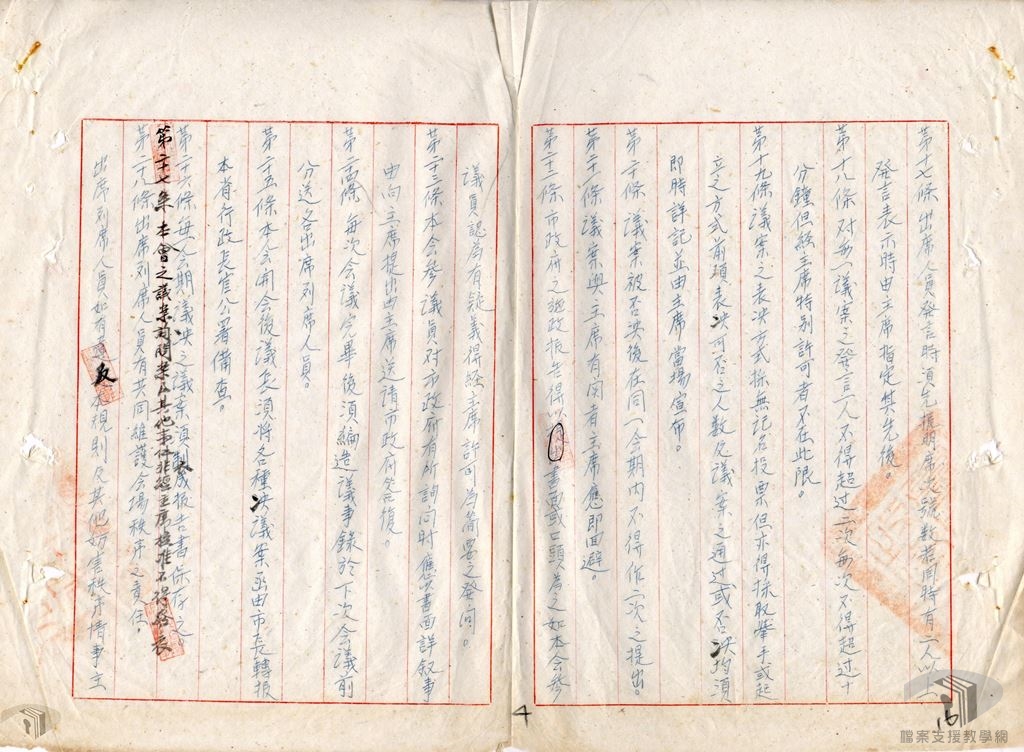 第十七條出席人員發言時須先報明席次號數若同時有二人以上
發言表示時由主席指定其先後。
第十八條对每一議案之發言一人不得超过二次每次不得超过十
分鐘但經主席特别許可者不在此限。
第十九條議案之表决方式採無記名投票但亦得採取舉手或起
立之方式前項表决可否之人数及議案之通过或否决均須
即時詳記並由主席當場宣布。
第二十條議案被否决後在同一会期内不得作二次之提出。
第二十一條議案與主席有関者主席應即回避。
第二十二條市政府之施政报告得以書面或口頭為之如本会參
議員認為有疑義得経主席許可為簡要之發问。
第二十三條本会參議員对市政府有所詢问时應以書面詳叙事
由向主席提出由主席送請市政府答復。
第二十四條每次会議完畢後須編造議事錄於下次会議前
分送各出席列席人員。
第二十五條本会開会後議長須将各種决議案函由市長轉报
本省行政長官公署備查。
第二十六條每一会期議决之議案須製成报告書保存之。
第二十七条本會之議案詢問案及其他事件非經主席核准不得發表
第二十八條出席列席人員有共同維護会場秩序之責任。
出席列席人員如有違反本規則及其他妨害秩序情事主
4
16
檔案支援教學網